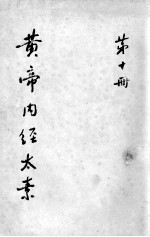 第十册
黄帝内经太素